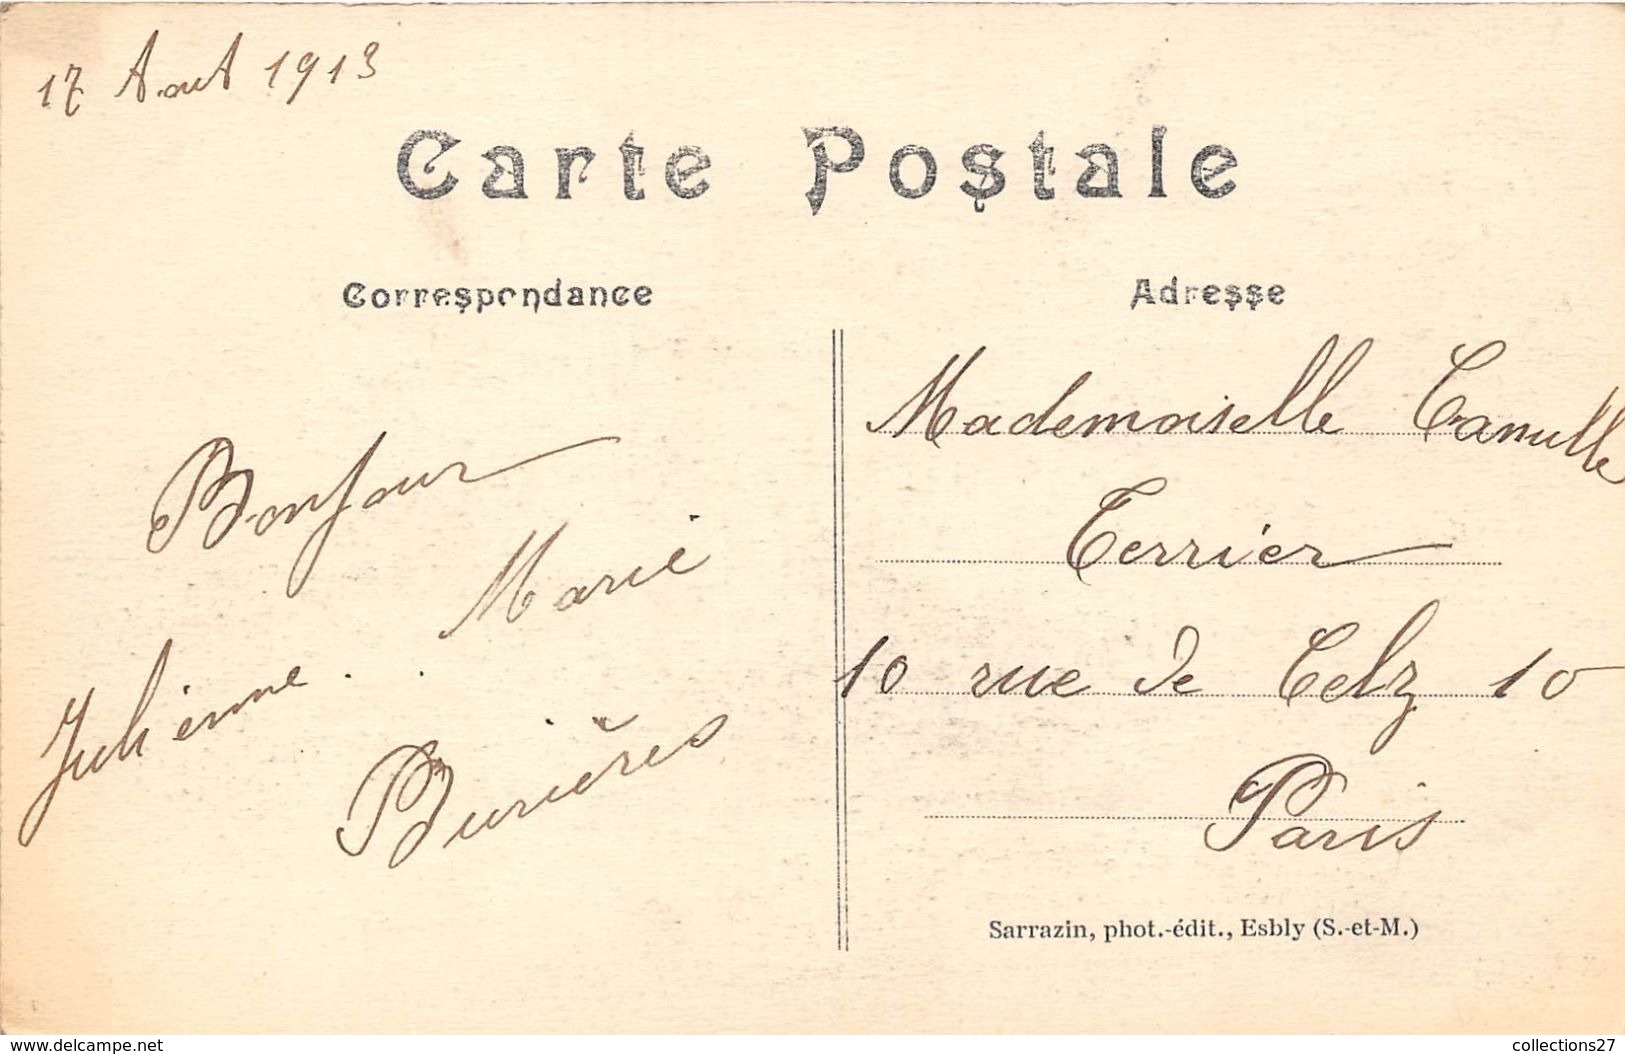 17 Aout 1913
Carte Postale
Correspondance
Adresse
Bonjour
Marie
Julienne . .
Burières
Mademoiselle Camille
Terrier
10 rue de Celz 10
Paris
Sarrazin, phot.-édit., Esbly (S.-et-M.)
www.delcampe.net
collections27